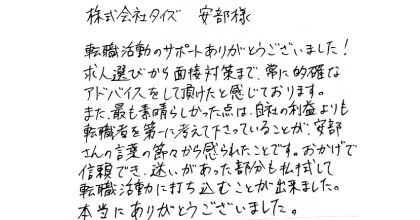 株式会社タイズ 安部様
転職活動のサポートありがとうございました!
求人選びから面接対策まで、常に的確な
アドバイスをして頂けたと感じております。
また、最も素晴らしかった点は、自社の利益よりも
転職者を第一に考えて下さっていることが、安部
さんの言葉の節々から感じられたことです。おかげで
信頼でき、迷いがあった部分も払拭して
転職活動に打ち込むことが出来ました。
本当にありがとうございました。